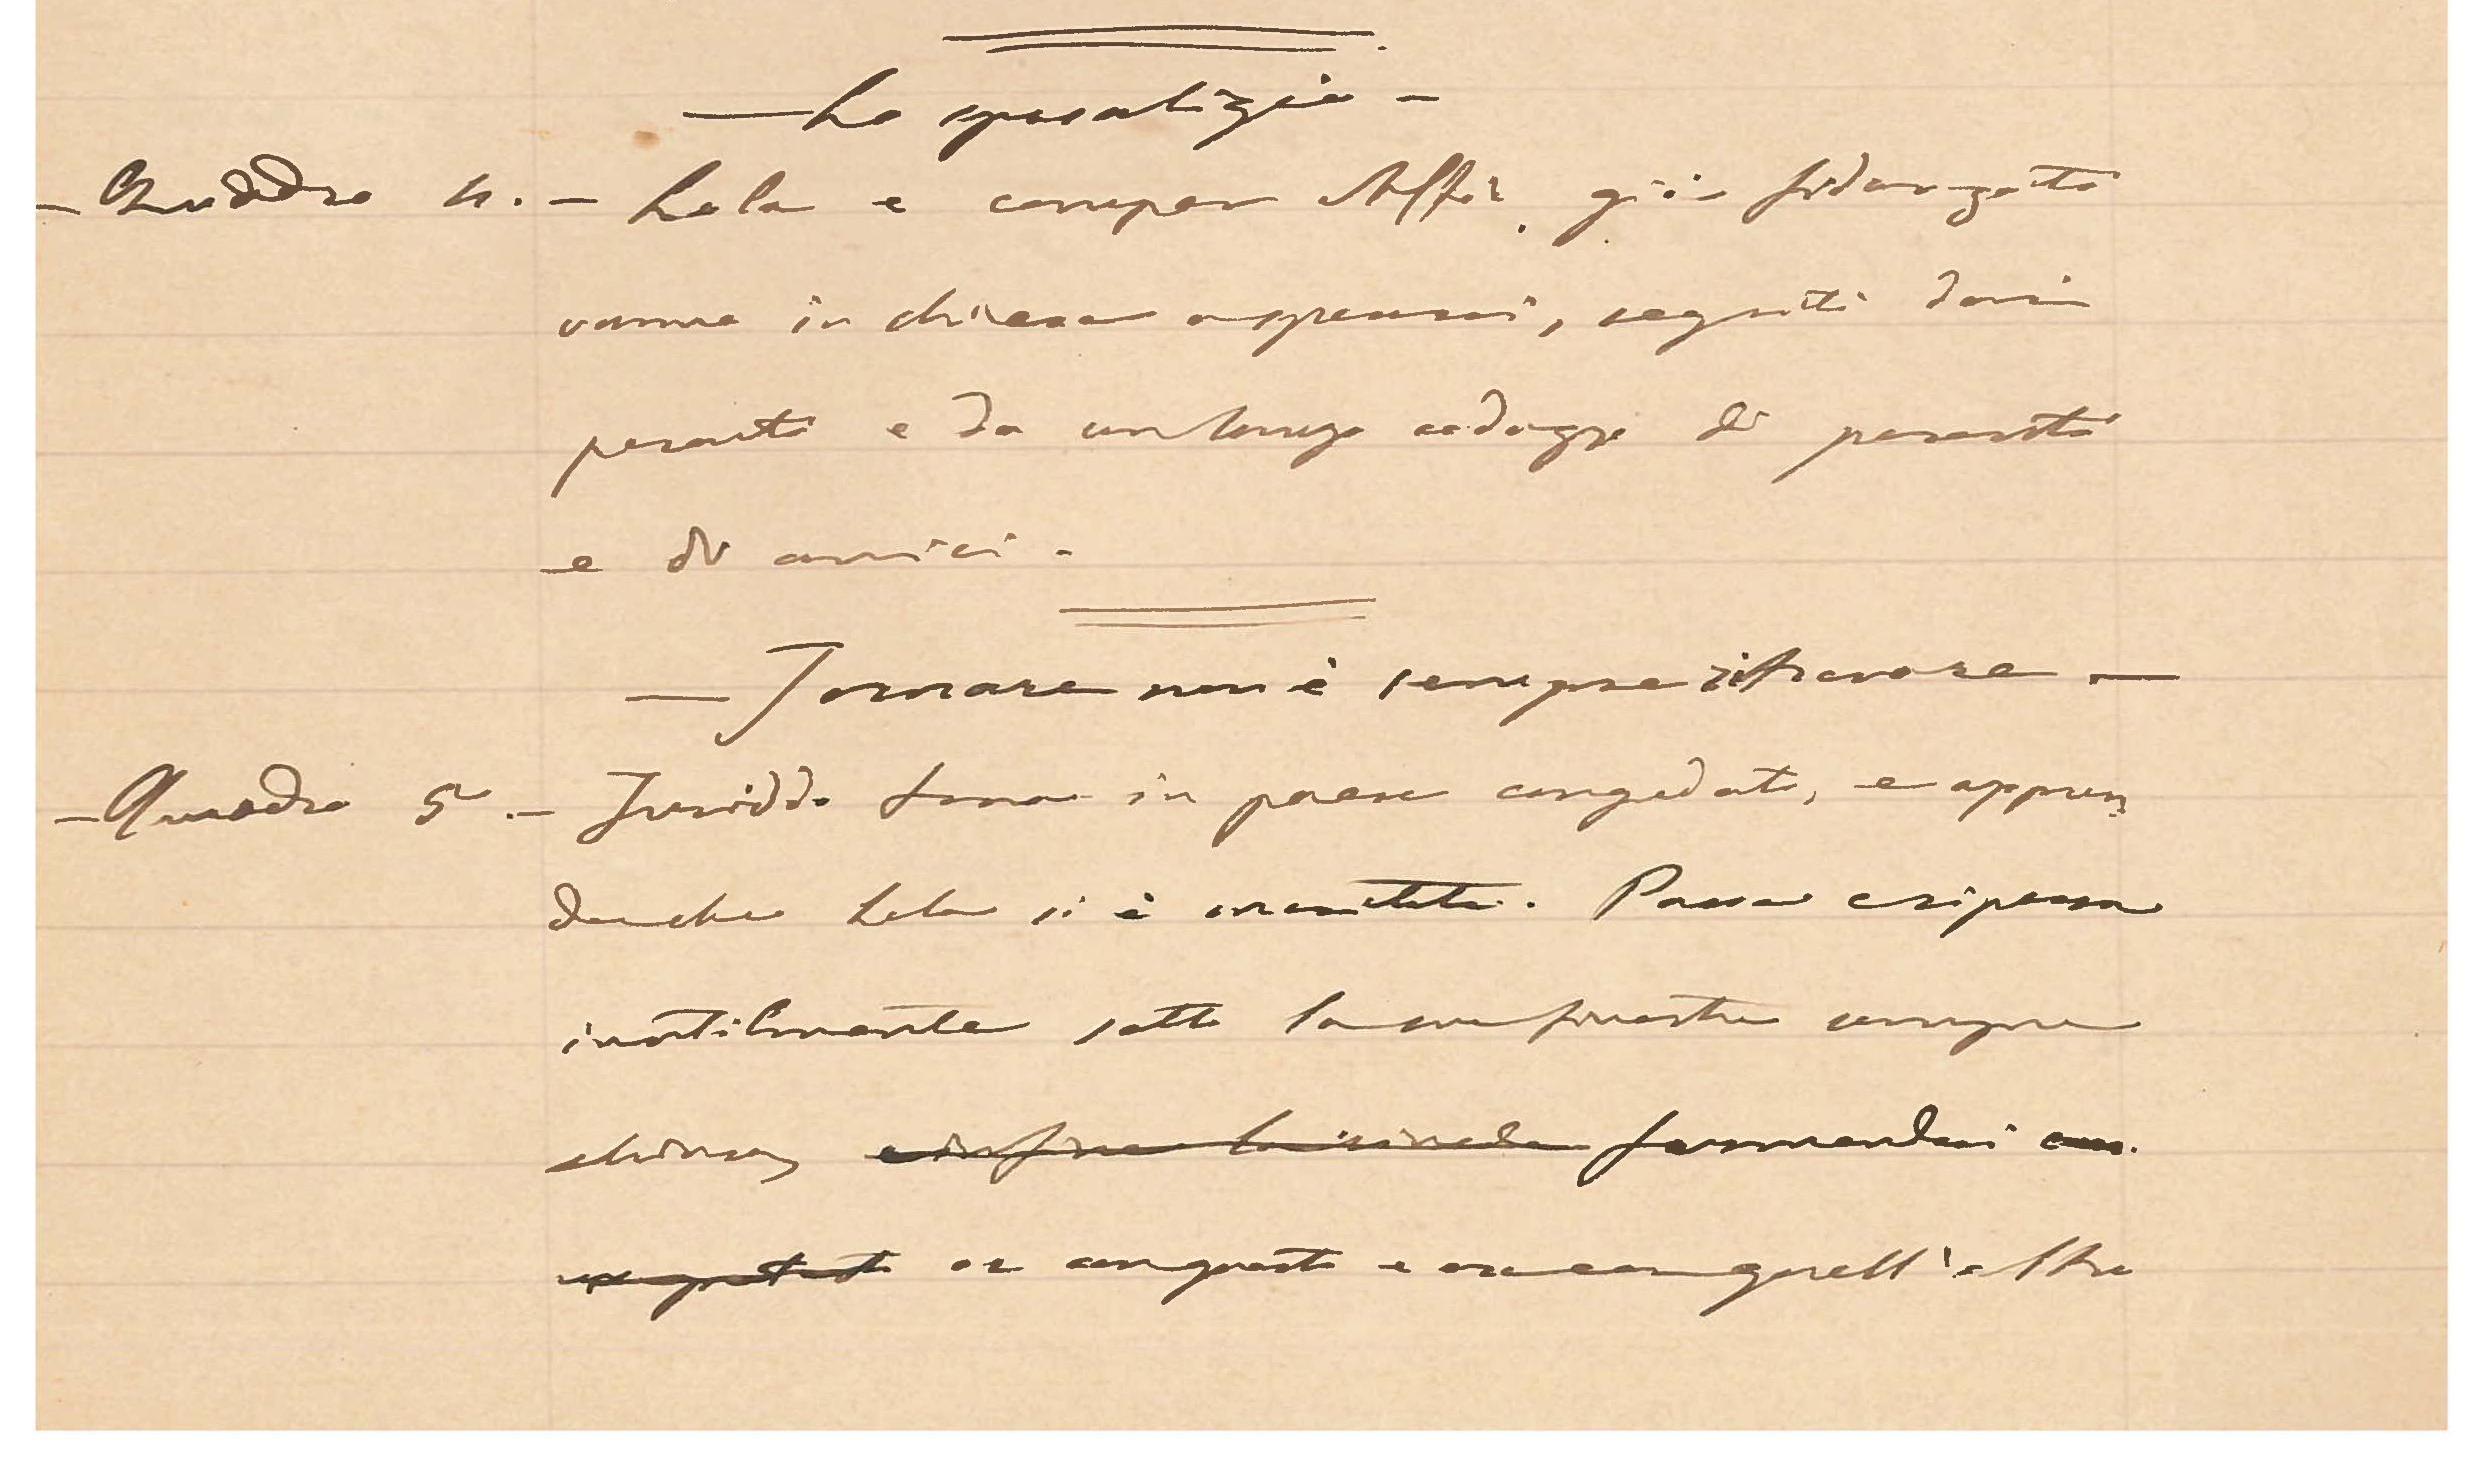 — Lo sposalizio —
— Quadro 4. — Lola e compar Alfio, già fidanzati
vanno in chiesa a sposarsi, seguiti dai
parenti e da un lungo codazzo di parenti
e di amici.
— Tornare non è sempre ritrovare —
— Quadro 5. — Turiddo torna in paese congedato, e appren
de che Lola si è maritata. Passa e ripassa
inutilmente sotto la sua finestra sempre
chiusa, e infine la rivede fermandosi
or con questo e ora con quell'altro